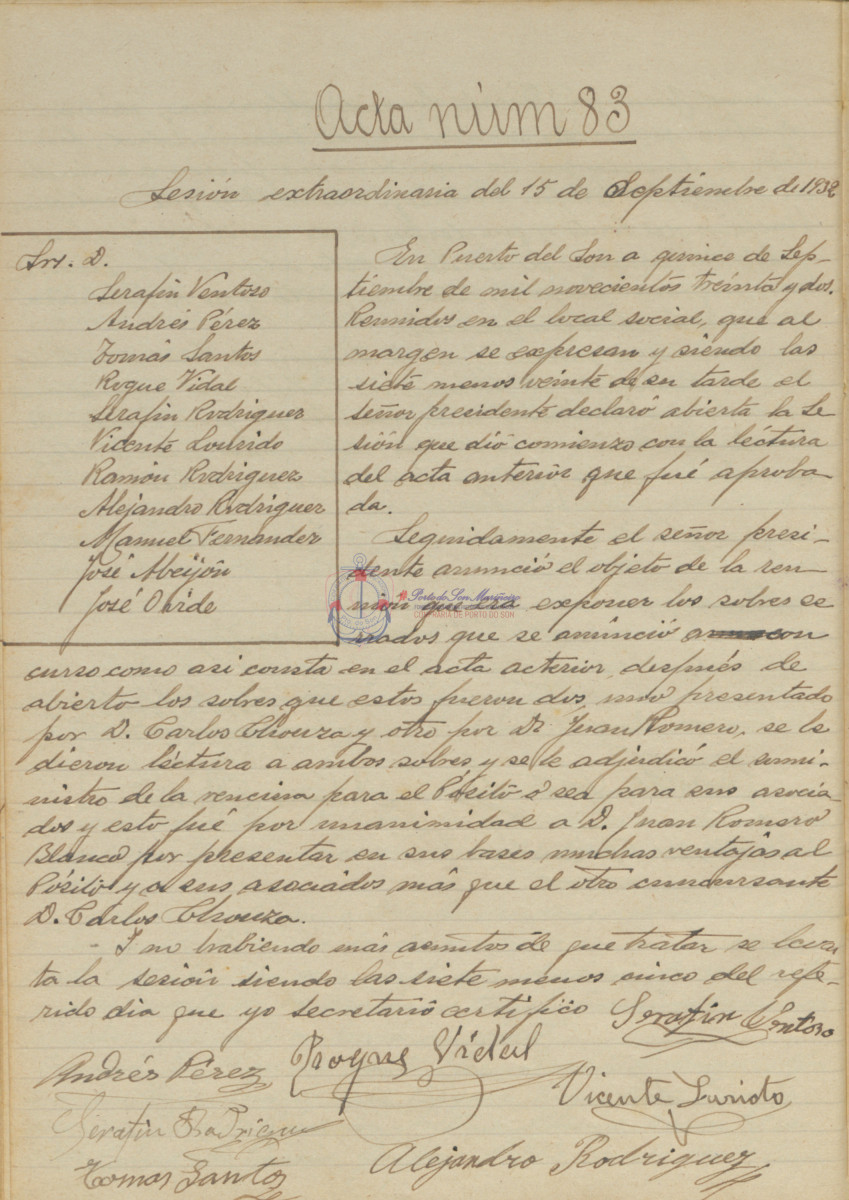 Acta núm 83
Sesión extraordinaria del 15 de Septiembre de 1932
Srs. D.
Serafin Ventoso
Andrés Pérez
Tomás Santos
Roque Vidal
Serafin Rodriguez
Vicente Lourido
Ramón Rodriguez
Alejandro Rodriguez
Manuel Fernandez
José Abeijón
José Ouide
En Puerto del Son a quince de Sep-
tiembre de mil novecientos treinta y dos.
Reunidos en el local social, que al
margen se expresan y siendo las
siete menos veinte de su tarde el
señor presidente declaró abierta la Se
sión que dió comienzo con la léctura
del acta anterior que fué aproba-
da.
Seguidamente el señor presi-
dente anunció el objeto de la reu-
nión que era exponer los sobres se
rrados que se anúnció con
curso como asi consta en el acta acterior, después de
abierto los sobres que estos fueron dos, uno presentado
por D. Carlos Chouza y otro por D. Juan Romero, se le
dieron léctura a ambos sobres y se le adjudicó el sumi-
nistro de la vencina para el Pósito ó sea para sus asocia-
dos y esto fué por unanimidad a D. Juan Romero
Blanco por presentar en sus bases muchas ventajas al
Pósito y a sus asociádos más que el otro cuncursante
D. Carlos Chouza.
- I no habiendo más asuntos de que tratar se levan
ta la sesión siendo las siete menos cinco del refe-
rido dia que yo secretario certifico
Serafin Ventoso
Andrés Pérez
Roque Vidal
Vicente Lurido
Serafin Rodriguez
Tomas Santos
Alejandro Rodriguez
Porto do Son Mariñeiro
CONFRARÍA DE PORTO DO SON